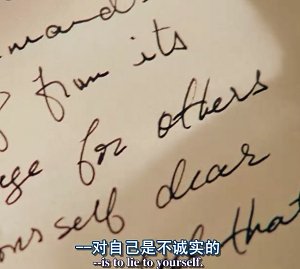 mands
from its
ge for others
ourself dear
that
一对自己是不诚实的
--is to lie to yourself.